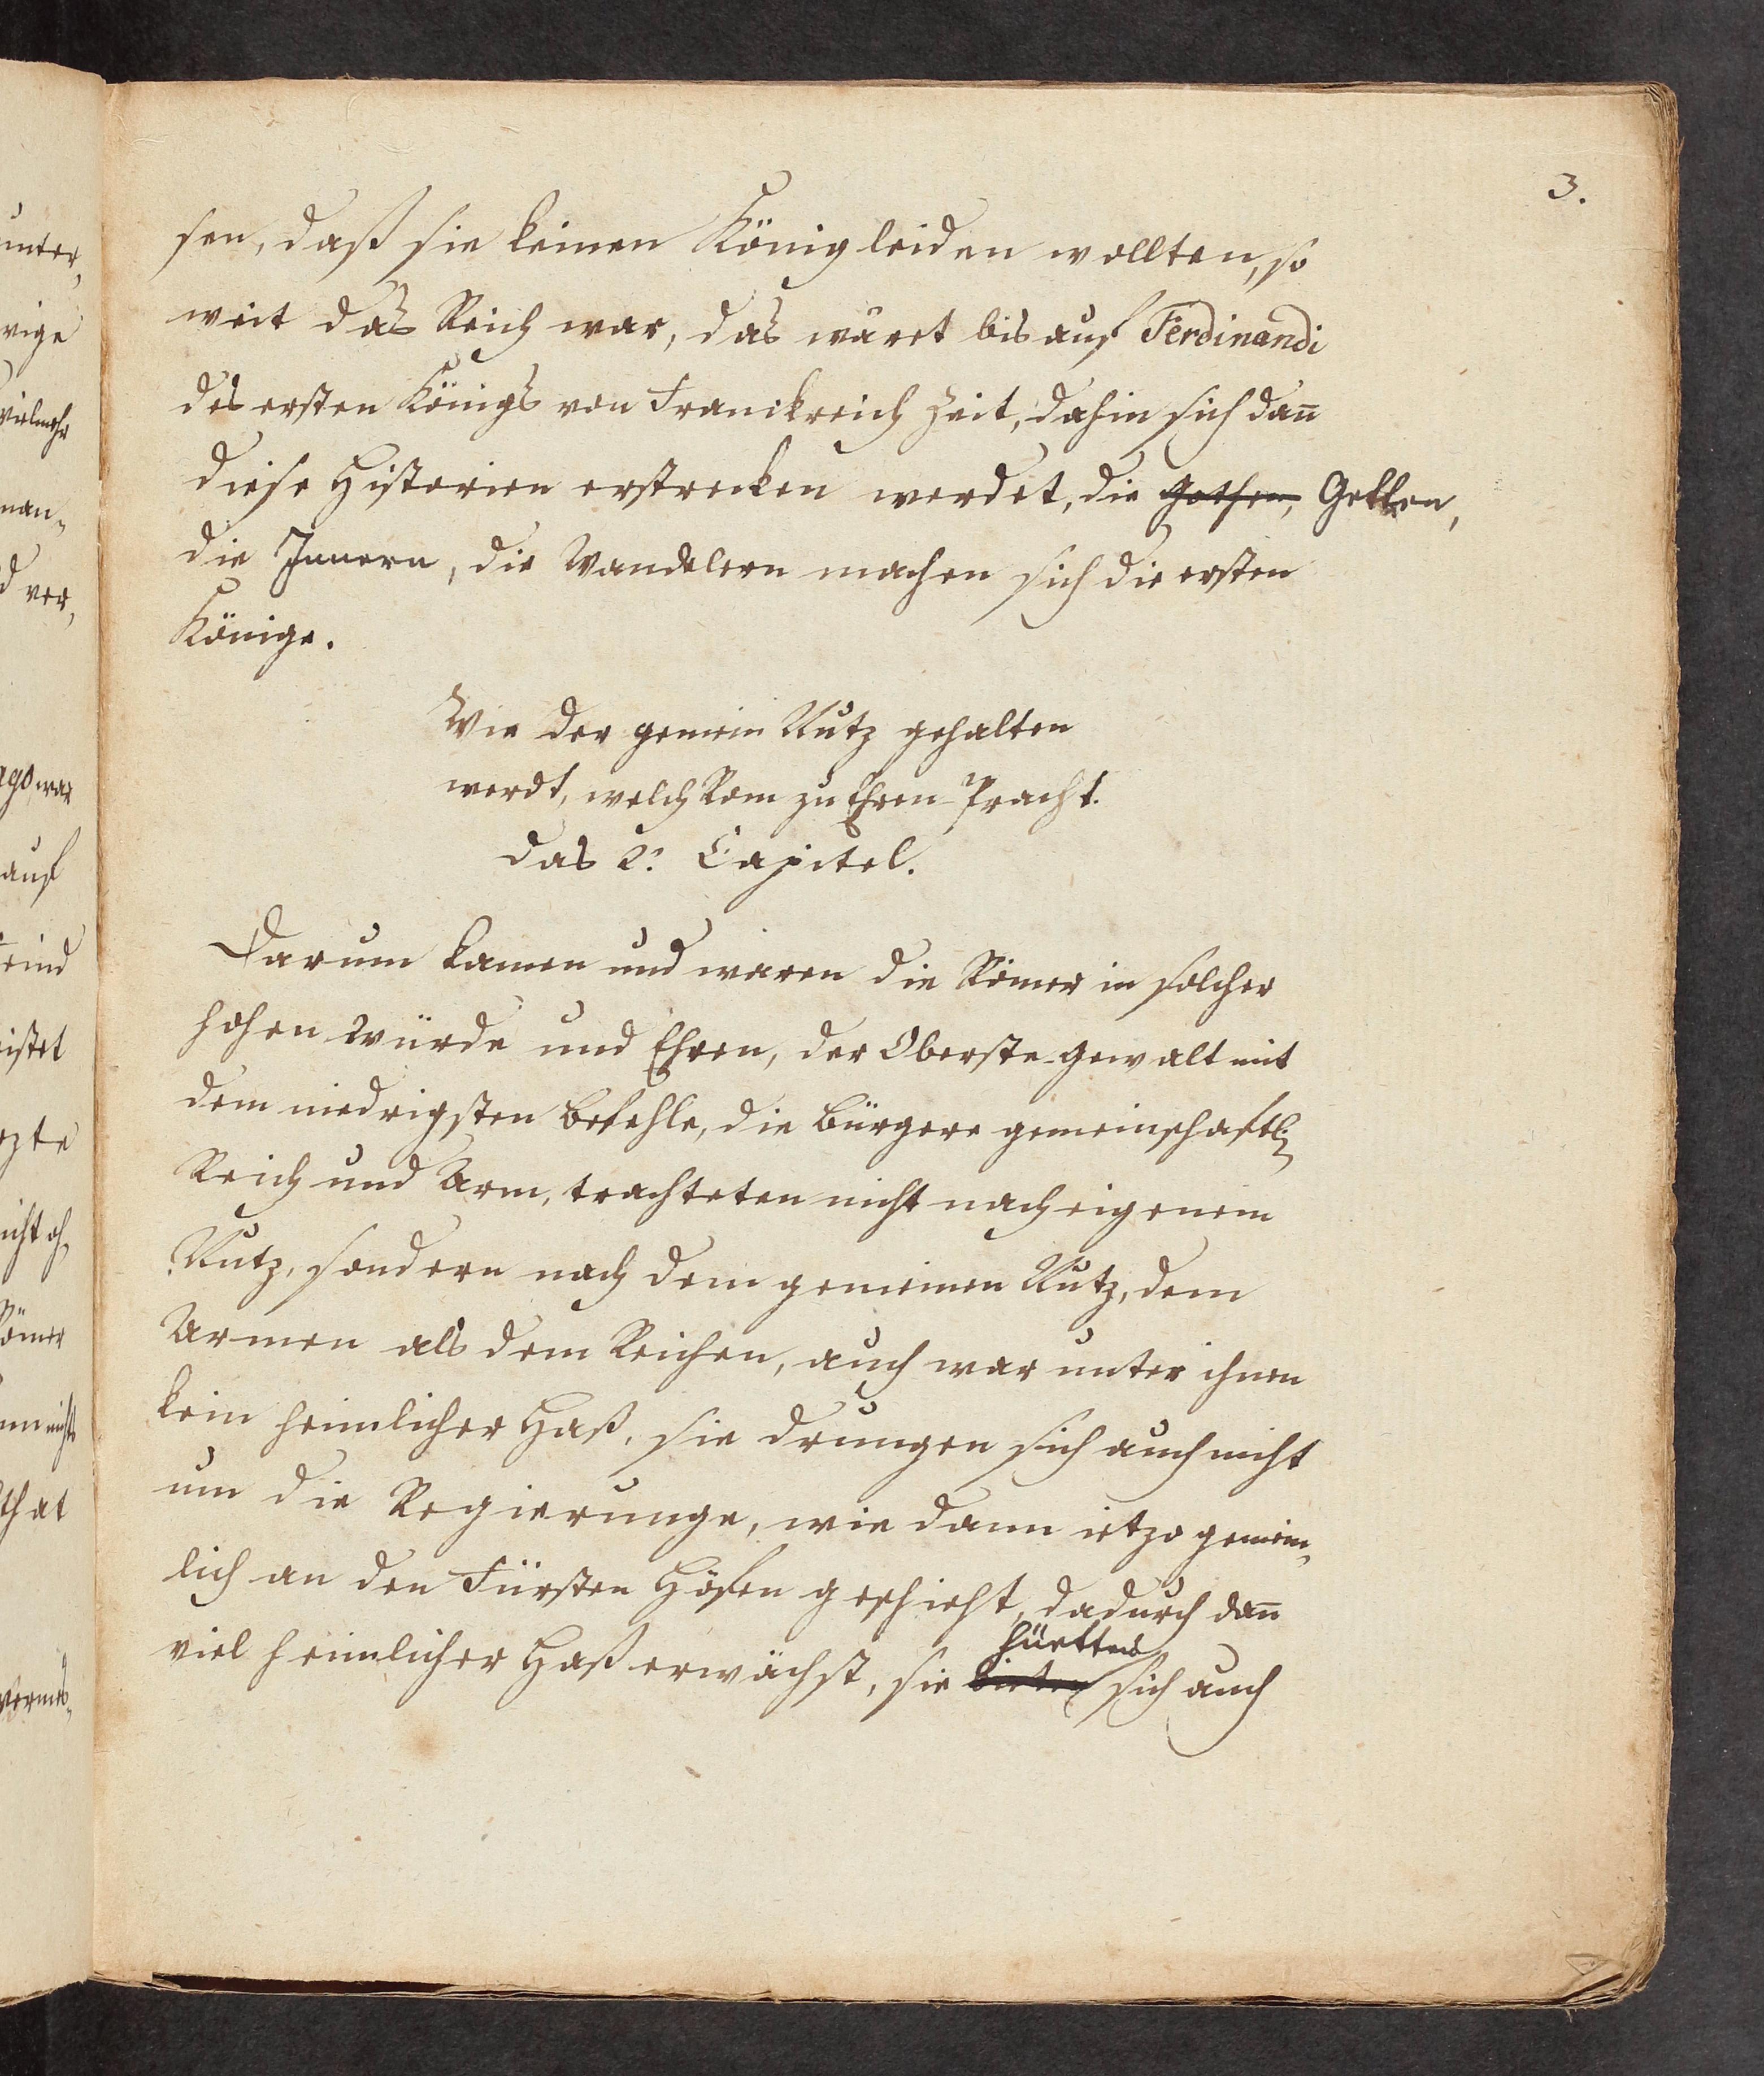 3.
sen, daß sie keinen König leiden wollten, so
weit das Reich war, das wäret bis auf Ferdinandi
des ersten Königs von Franckreich Zeit, dahin sich dan̄
diese Historien erstrecken werdet, die Gothen, Getten,
die Innern, die Wandelern machen sich die ersten
Könige.
Wie der gemein Nutz gehalten
werdt, welch Rom zu Ehren Pracht.
Das 2. Capitel.
Darum kamen und waren die Römer in solcher
hohen Würde und Ehren, der Oberste Gewalt mit
dem niedrigsten Befehle, die Bürgere gemeinschaftl.
Reich und Arm, trachteten nicht nach eigenem
Nutz, sondern nach dem gemeinen Nutz, dem
Armen als dem Reichen, auch war unter ihnen
kein heimlicher Haß, sie drungen sich auch nicht
um die Regierunge, wie dann ietzo gemein„
lich an den Fürsten Höfen geschieht, dadurch dan̄
hüetten
viel heimlicher Haß erwächst, sie sich auch
unter„
rige
vielmehr
man„
d ver„
ago war
auf
feind
istet
zte
icht oh„
Römer
nichts
that